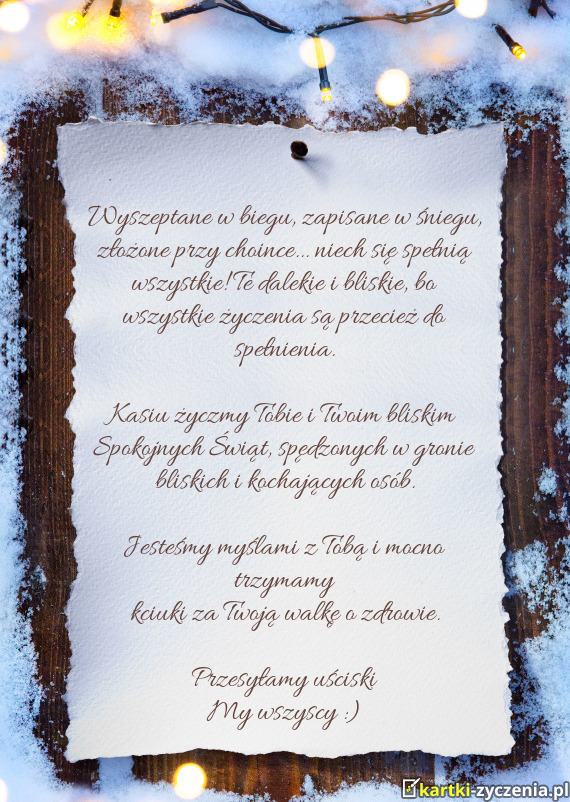 Wyszeptane w biegu, zapisane w śniegu,
złożone przy choince... niech się spełnią
wszystkie! Te dalekie i bliskie, bo
wszystkie życzenia są przecież do
spełnienia.
Kasiu życzmy Tobie i Twoim bliskim
Spokojnych Świąt, spędzonych w gronie
bliskich i kochających osób.
Jesteśmy myślami z Tobą i mocno
trzymamy
kciuki za Twoją walkę o zdrowie.
Przesyłamy uściski
My wszyscy :)
kartki-zyczenia.pl